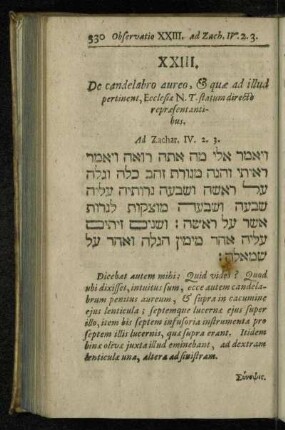 330 Observatio XXIII. ad Zach. IV. 2. 3.
XXIII.
De candelabro aureo, & quæ ad illud
pertinent, Ecclesiæ N. T. statum directè
repræsentanti-
bus.
Ad Zachar. IV. 2. 3.
ויאמר אלי מה אתה רואה ויאמר
ראיתי והנה מנורת זהב כלה וגלה
על ראשה ושבעה נרותיה עליה
שבעה ושבעה מוצקות לנרות
אשר על ראשה : ושנים זיתים
עליה אחד מימין הגלה ואחד על
שמאלה :
Dicebat autem mihi: Quid vides? Quod
ubi dixisset, intuitus sum, ecce autem candela-
brum penitus aureum, & supra in cacumine
ejus lenticula; septemque lucernæ ejus super
illo, item bis septem infusoria instrumenta pro
septem illis lucernis, quæ supra erant. Itidem
binæ olivæ juxta illud eminebant, ad dextram
lenticulæ una, altera ad sinistram.
Σύνοψις.